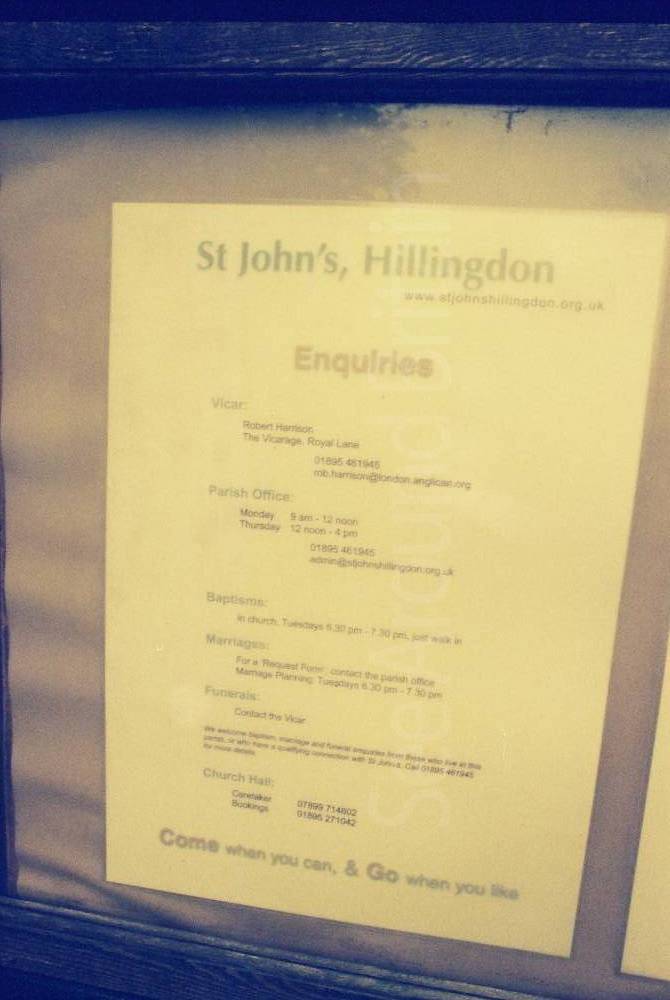 St John's, Hillingdon
www.stjohnshillingdon.org.uk
Enquiries
Vicar:
Robert Harrison
The Vicarage, Royal Lane
01895 461945
rob.harrison@london.anglican.org
Parish Office:
Monday 9 am - 12 noon
Thursday 12 noon - 4 pm
01895 461945
admin@stjohnshillingdon.org.uk
Baptisms:
In church, Tuesdays 6.30 pm - 7.30 pm, just walk in
Marriages:
For a 'Request Form', contact the parish office
Marriage Planning: Tuesdays 6.30 pm - 7.30 pm
Funerals:
Contact the Vicar
We welcome baptism, marriage and funeral enquiries from those who live in this
parish, or who have a qualifying connection with St John's. Call 01895 461945
for more details.
Church Hall:
Caretaker 07899 714602
Bookings 01895 271042
Come when you can, & Go when you like